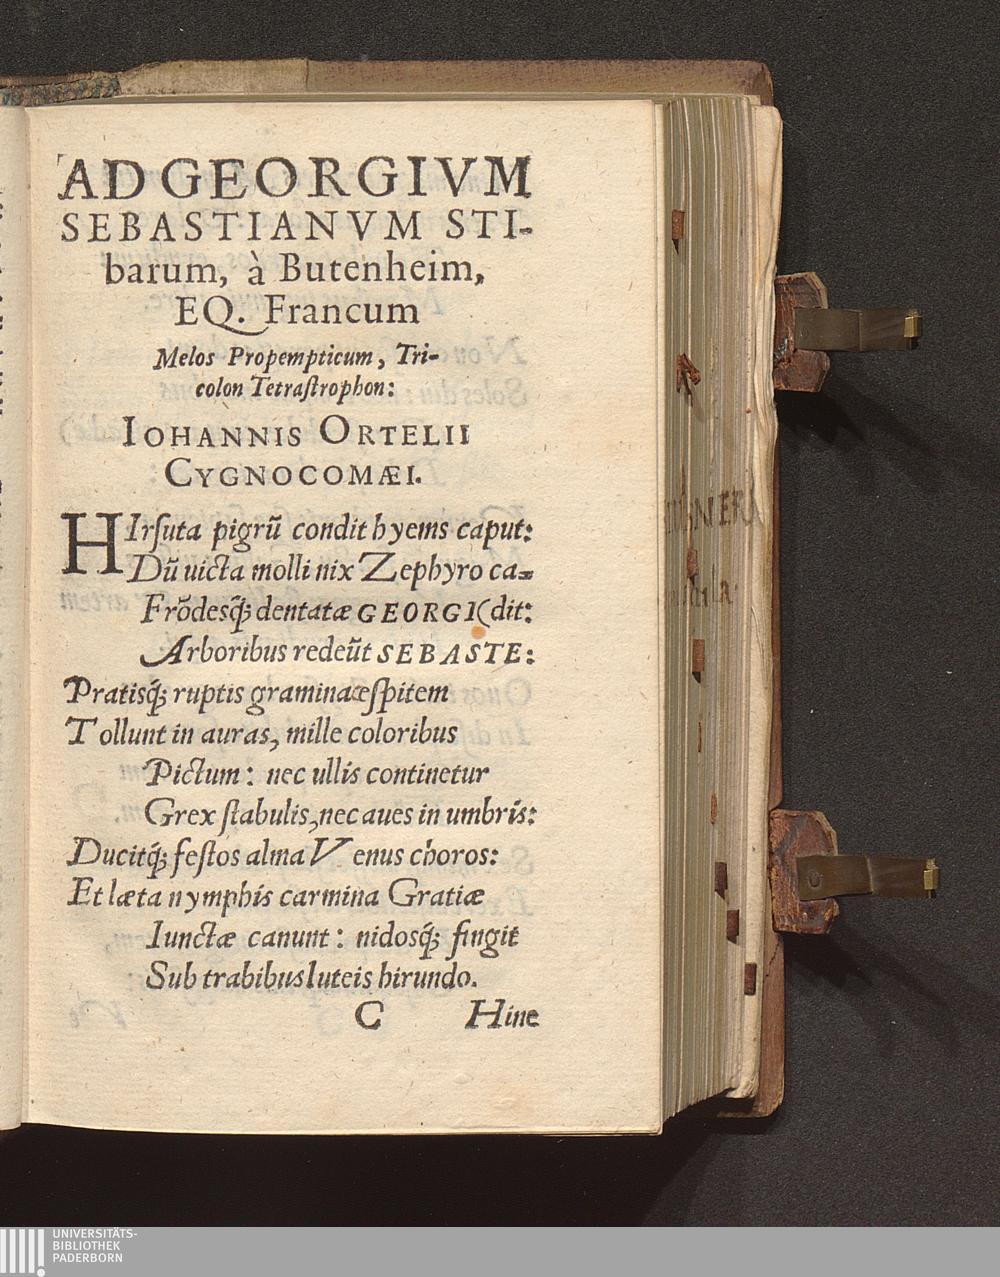 AD GEORGIVM
SEBASTIANVM STI-
barum, à Butenheim,
EQ. Francum
Melos Propempticum, Tri-
colon Tetraſtrophon:
IOHANNIS ORTELII
CYGNOCOMÆI.
HIrſuta pigrũ condit hyems caput:
Dũ uicta molli nix Zephyro ca-
Frõdesq́; dentatæ GEORGI (dit:
Arboribus redeũt SEBASTE:
Pratisq́; ruptis gramina ceſpitem
Tollunt in auras, mille coloribus
Pictum: nec ullis continetur
Grex ſtabulis, nec aues in umbris:
Ducitq́; feſtos alma Venus choros:
Et læta nymphis carmina Gratiæ
Iunctæ canunt: nidosq́; fingit
Sub trabibus luteis hirundo.
C Hinc
UNIVERSITÄTS-
BIBLIOTHEK
PADERBORN